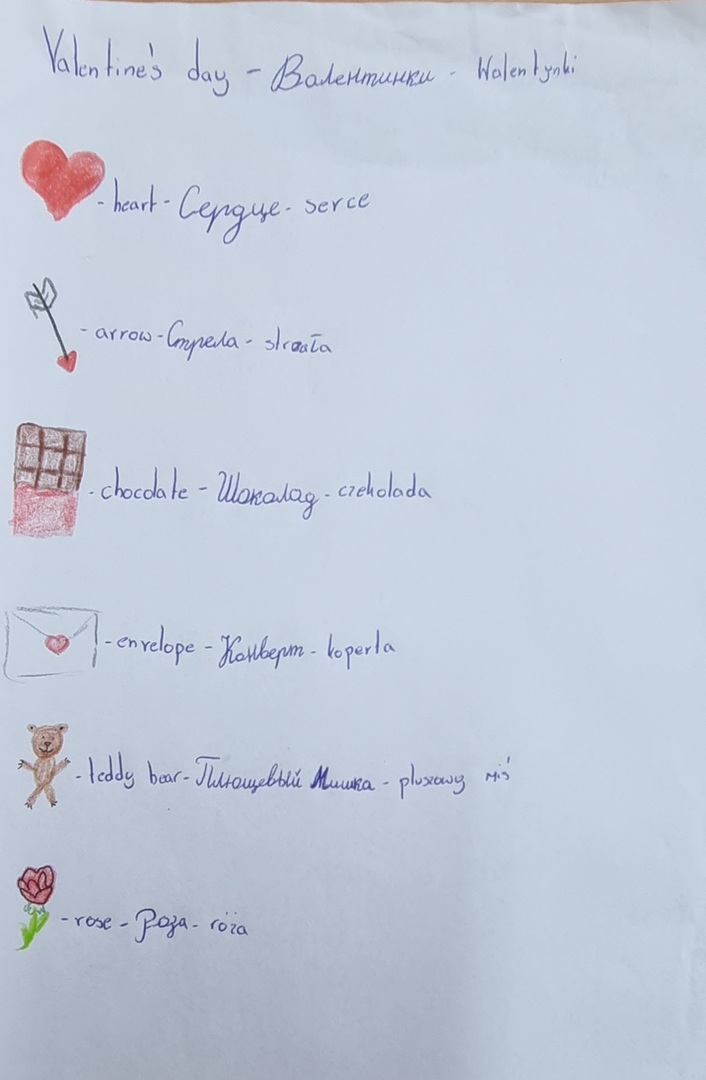 Valentine's day - Валентинки - Walentynki
- heart - Сердце - serce
- arrow - Стрела - strzała
- chocolate - Шоколад - czekolada
- envelope - Конверт - koperta
- teddy bear - Плюшевый Мишка - pluszowy miś
- rose - Роза - róża